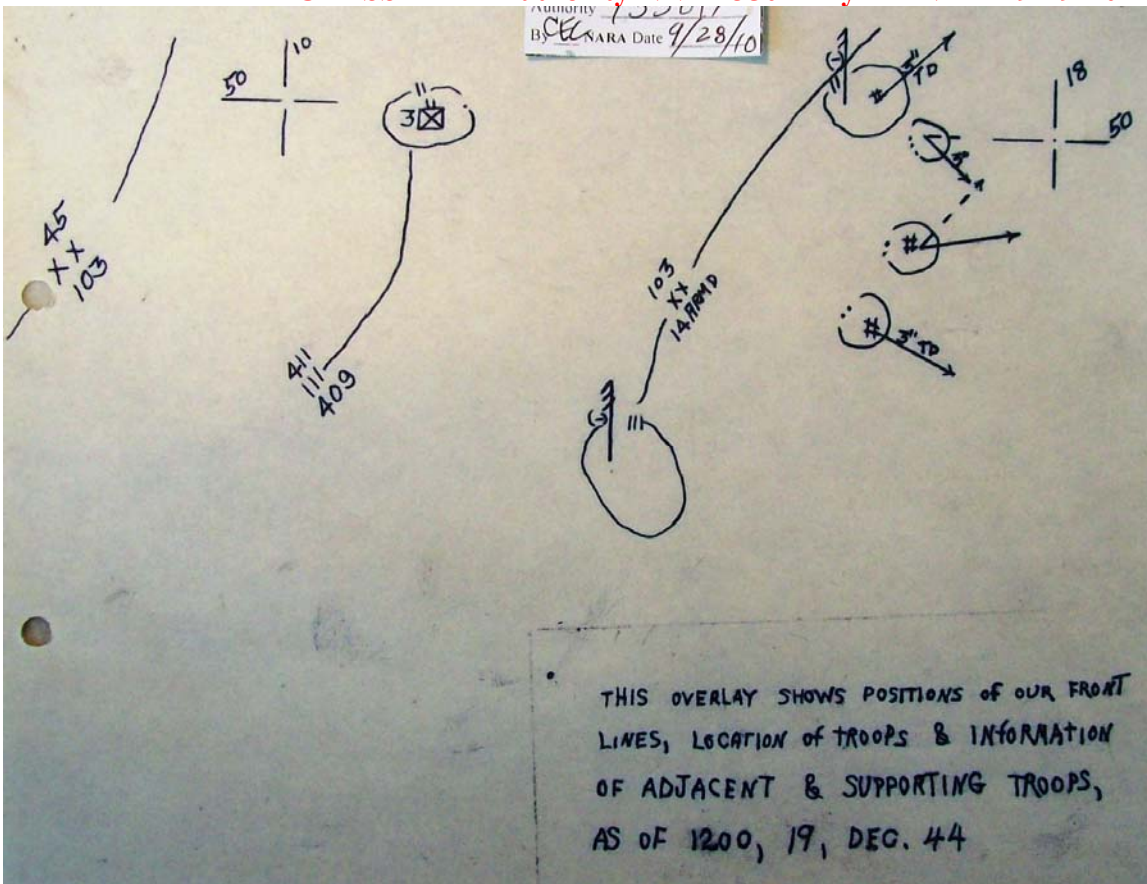 Authority
By CEC NARA Date 9/28/10
10
50
11
3
45
XX
103
411
111
409
(-)
11
3"
TD
18
50
3"
103
XX
14 ARMD
3" TD
(-)
111
THIS OVERLAY SHOWS POSITIONS of OUR FRONT
LINES, LOCATION of TROOPS & INFORMATION
OF ADJACENT & SUPPORTING TROOPS,
AS OF 1200, 19, DEC. 44